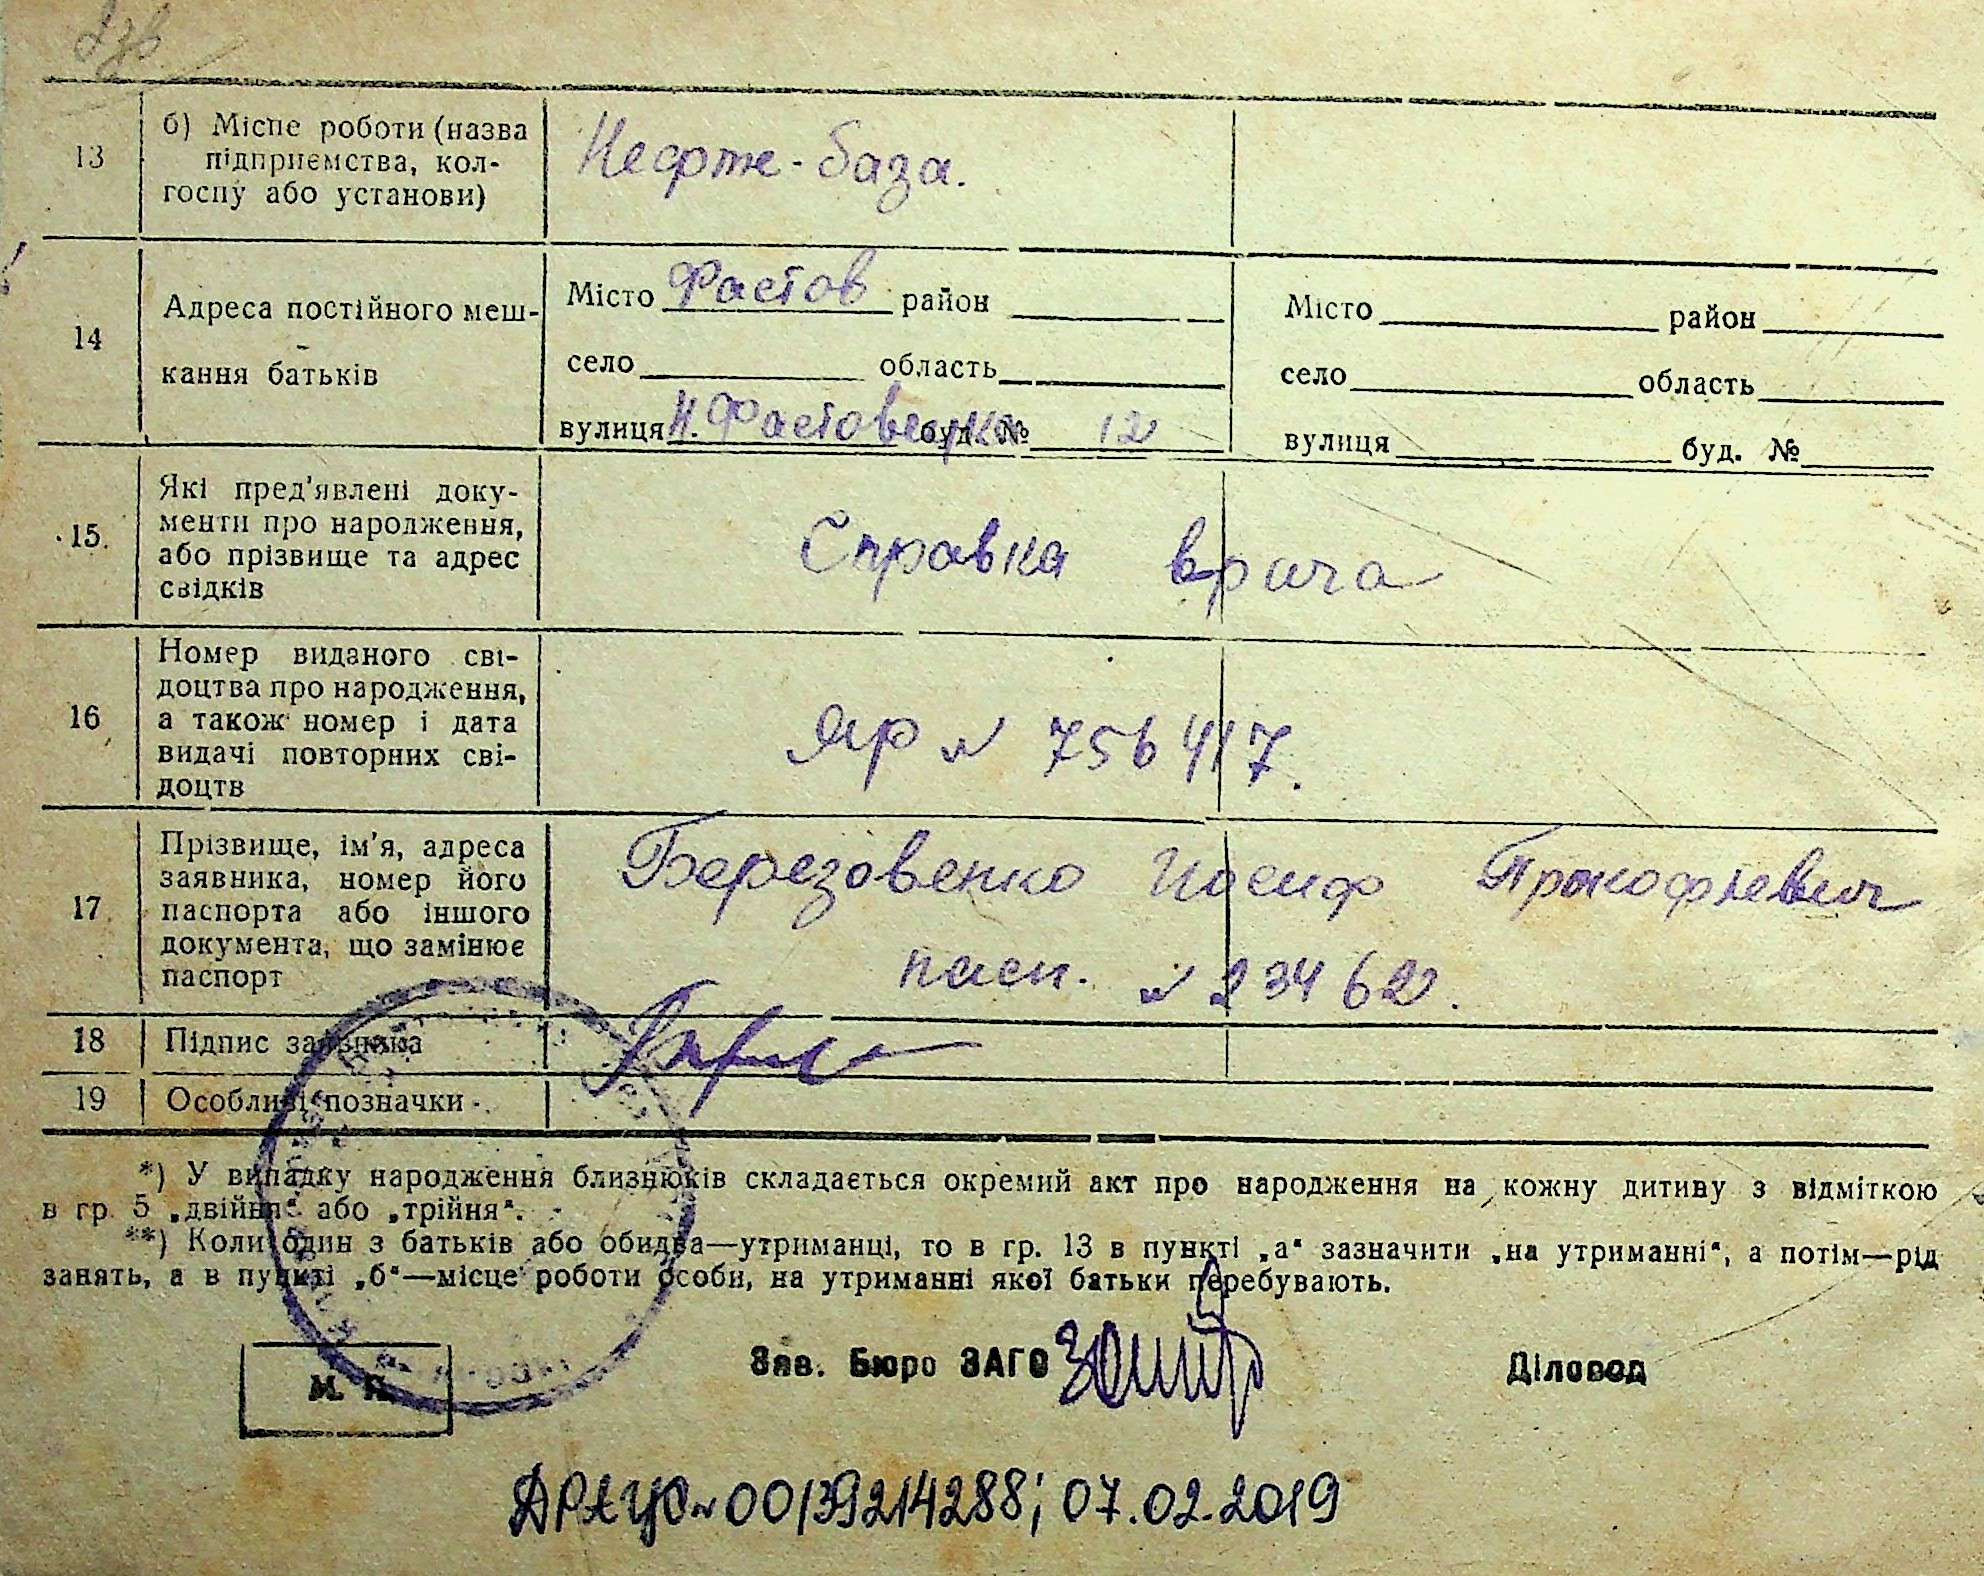 13 б) Місце роботи (назва
підприємства, кол-
госпу або установи) Нефте-база.
14 Адреса постійного меш-
кання батьків
Місто Фастов район Місто район
село область село область
вулиця Н. Фастовецка буд. № 12 вулиця буд. №
15 Які пред'явлені доку-
менти про народження,
або прізвище та адрес
свідків Справка врача
16 Номер виданого сві-
доцтва про народження,
а також номер і дата
видачі повторних сві-
доцтв № 756417.
17 Прізвище, ім'я, адреса
заявника, номер його
паспорта або іншого
документа, що замінює
паспорт
Березовенко Иосиф Прокофьевич
пасп. № 23462.
18 Підпис заявника
19 Особливі позначки
*) У випадку народження близнюків складається окремий акт про народження на кожну дитину з відміткою
в гр. 5 „двійня“ або „трійня“.
**) Коли один з батьків або обидва—утриманці, то в гр. 13 в пункті „а“ зазначити „на утриманні“, а потім—рід
занять, а в пункті „б“—місце роботи особи, на утриманні якої батьки перебувають.
М. П. Зав. Бюро ЗАГС Діловод
ДРАЦС № 00139214288; 07.02.2019